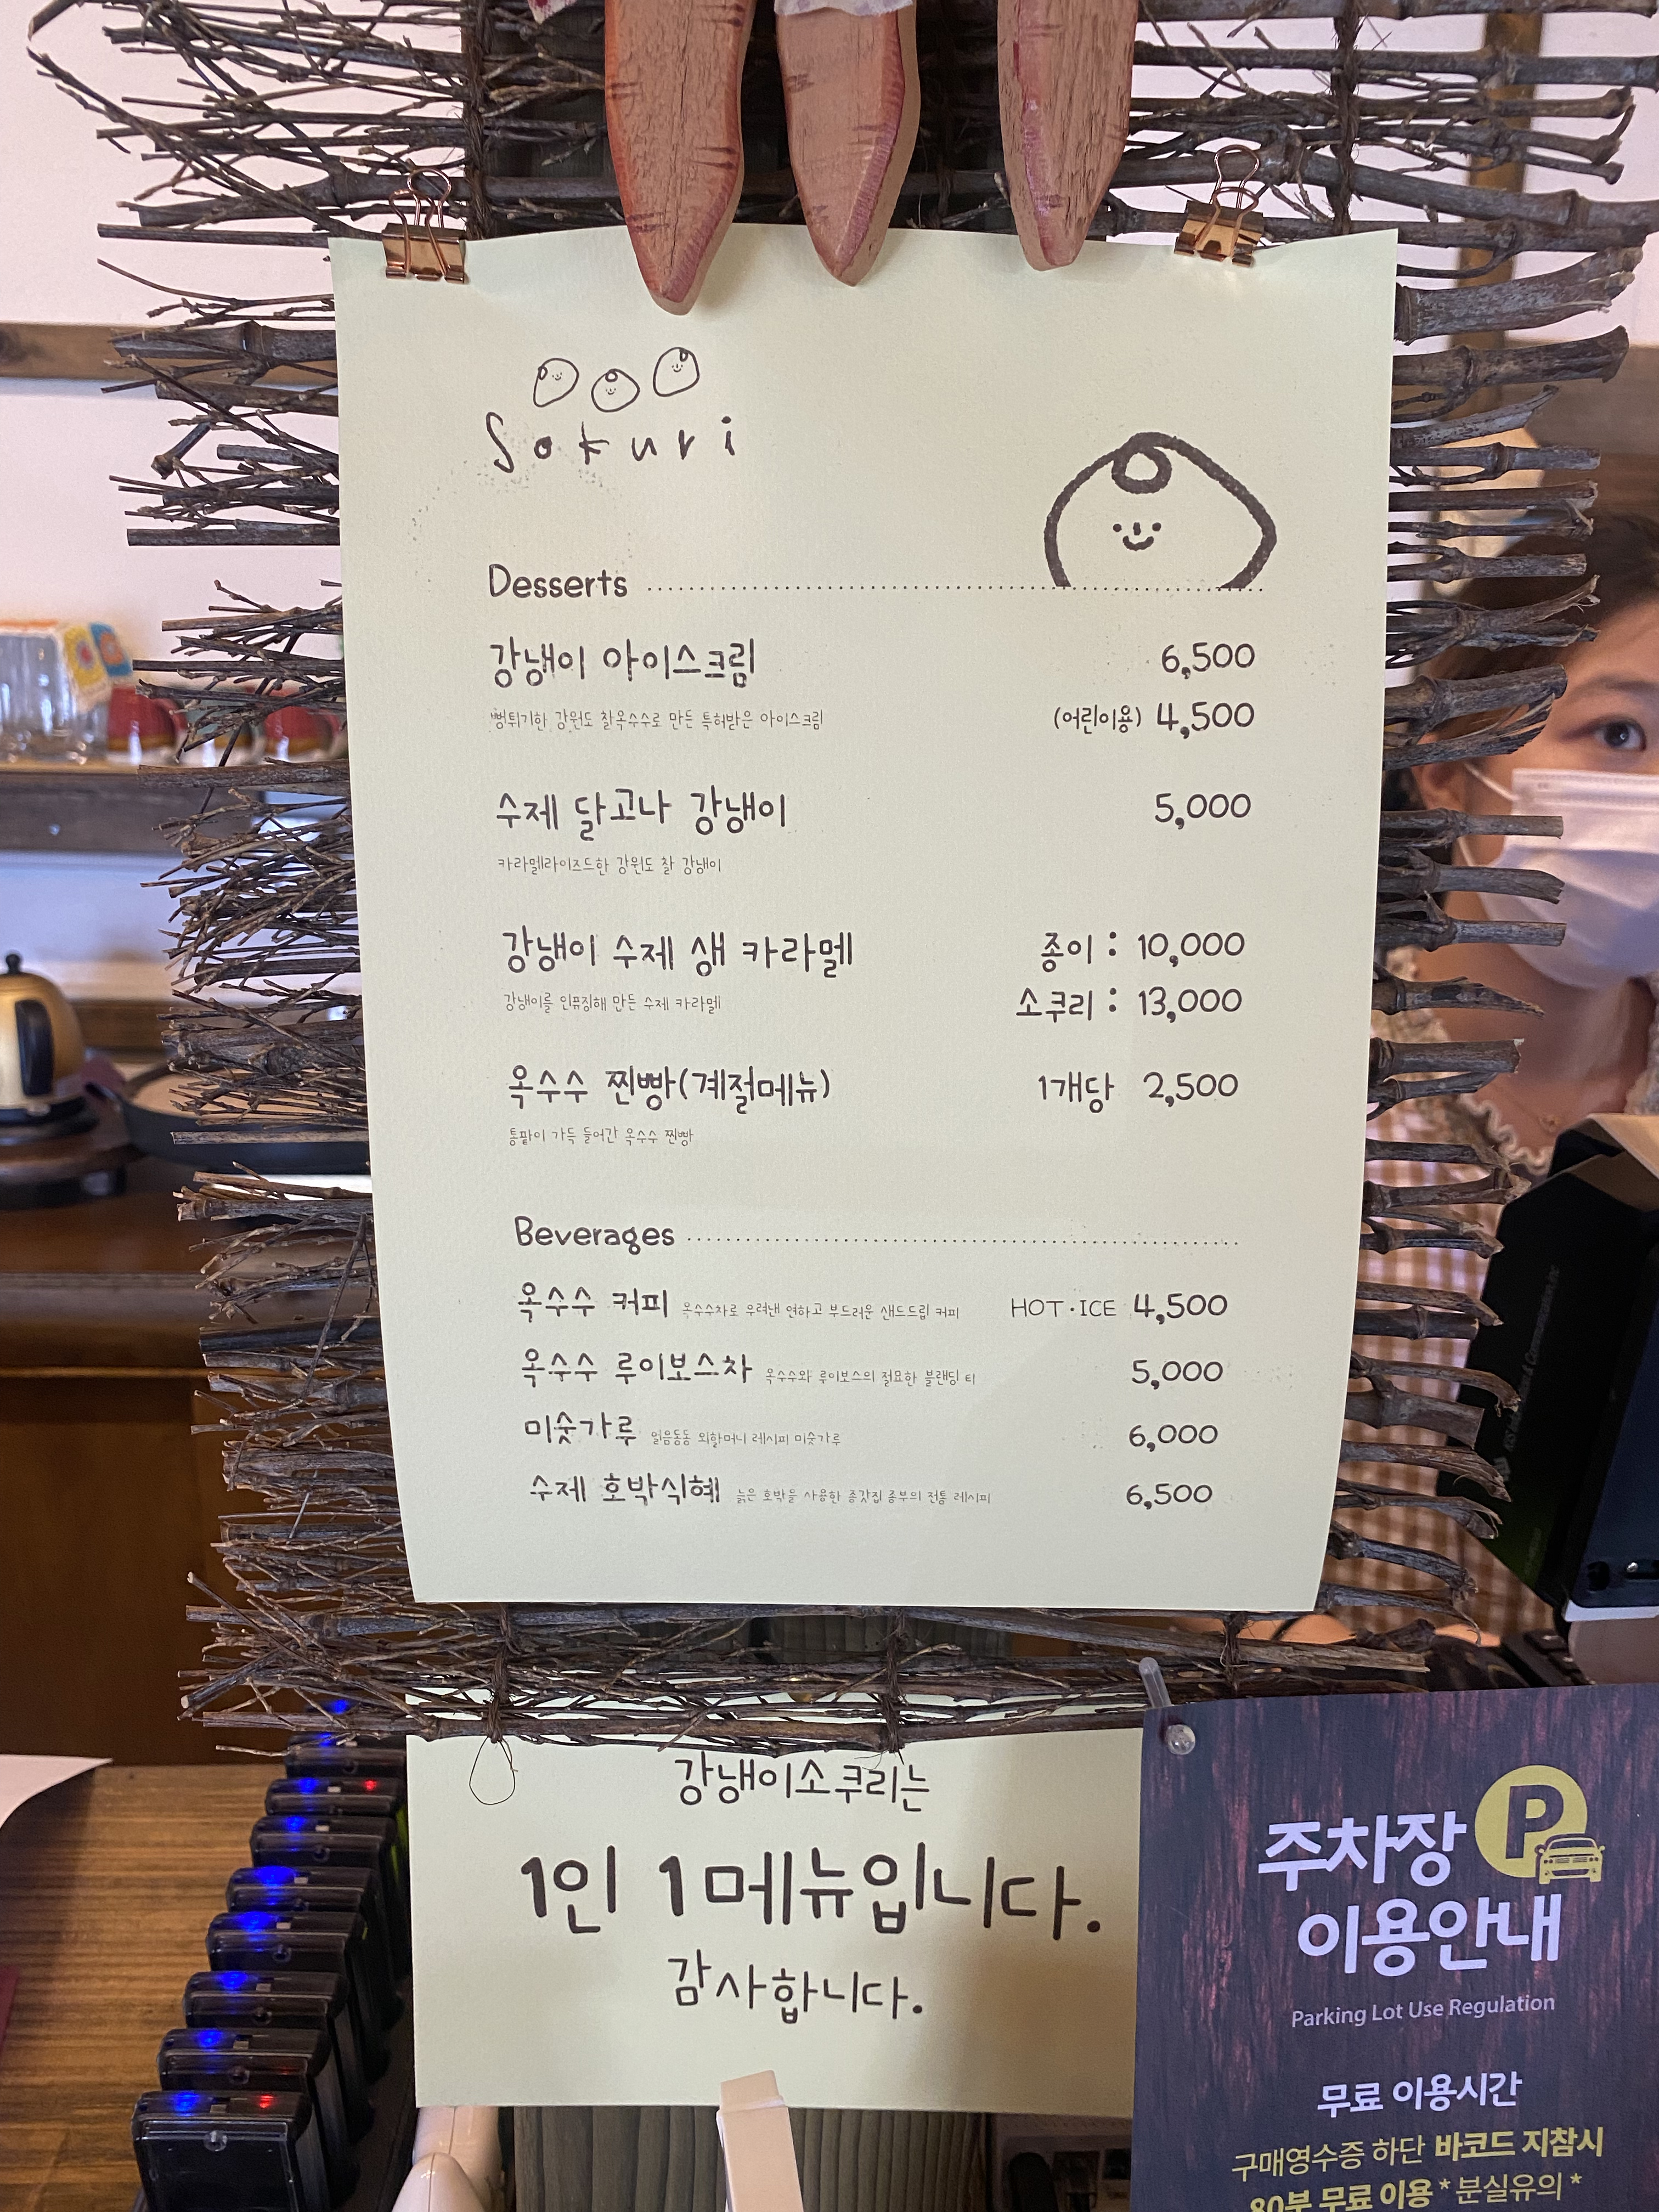 Sokuri
Desserts
강냉이 아이스크림 6,500
뻥튀기한 강원도 찰옥수수로 만든 특허받은 아이스크림 (어린이용) 4,500
수제 달고나 강냉이 5,000
카라멜라이즈드한 강원도 찰 강냉이
강냉이 수제 생 카라멜 종이 : 10,000
강냉이를 인퓨징해 만든 수제 카라멜 소쿠리 : 13,000
옥수수 찐빵(계절메뉴) 1개당 2,500
통팥이 가득 들어간 옥수수 찐빵
Beverages
옥수수 커피 옥수수차로 우려낸 연하고 부드러운 샌드드림 커피 HOT·ICE 4,500
옥수수 루이보스차 옥수수와 루이보스의 절묘한 블랜딩 티 5,000
미숫가루 얼음동동 외할머니 레시피 미숫가루 6,000
수제 호박식혜 늙은 호박을 사용한 종갓집 종부의 전통 레시피 6,500
강냉이소쿠리는
1인 1메뉴입니다.
감사합니다.
주차장 P
이용안내
Parking Lot Use Regulation
무료 이용시간
구매영수증 하단 바코드 지참시
80분 무료 이용 *분실유의*